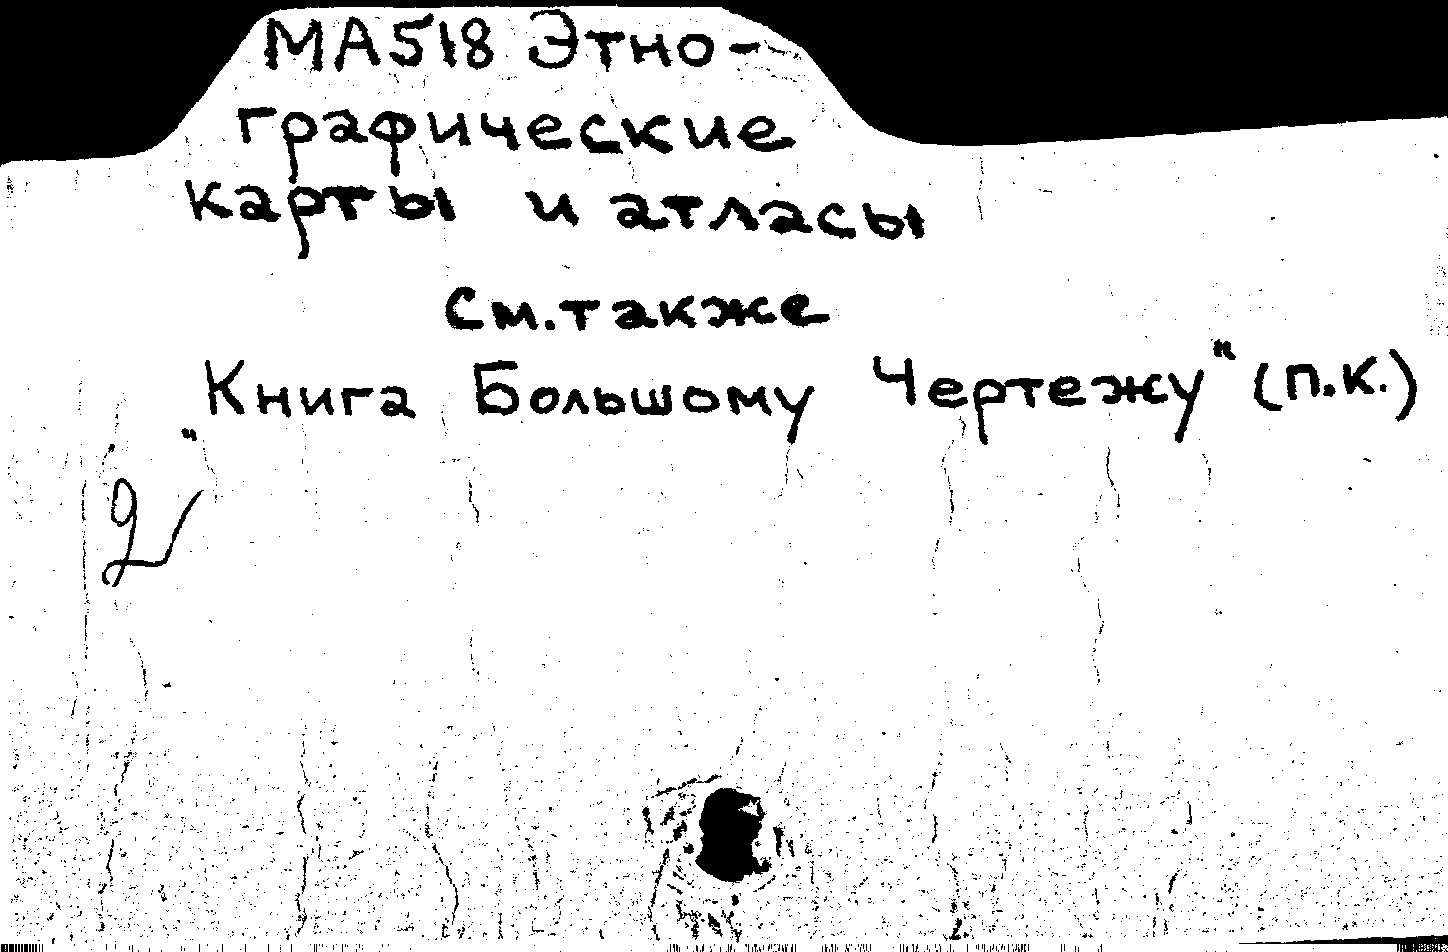 МА518 Этно-
графические
карты и атласы
См. также
"Книга Большому Чертежу" (п.к.)